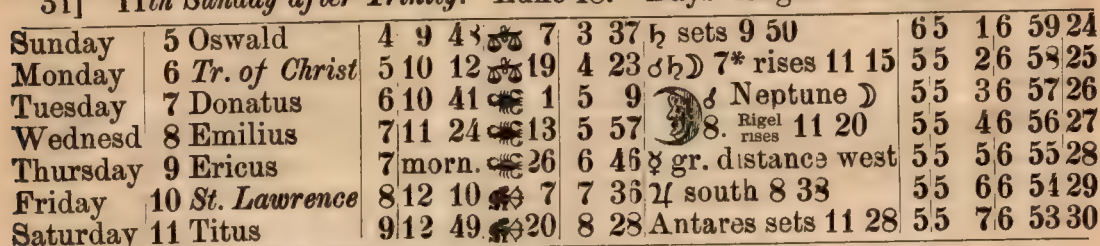 31] 11th Sunday after Trinity.
Sunday 5 Oswald 4 9 43 ♎ 7 3 37 ♄ sets 9 50 6 5 1 6 59 24
Monday 6 Tr. of Christ 5 10 12 ♎ 19 4 23 ☌♄☽ 7* rises 11 15 5 5 2 6 58 25
Tuesday 7 Donatus 6 10 41 ♏ 1 5 9 ☍ Neptune ☽ 5 5 3 6 57 26
Wednesd 8 Emilius 7 11 24 ♏ 13 5 57 8. Rigel rises 11 20 5 5 4 6 56 27
Thursday 9 Ericus 7 morn. ♏ 26 6 46 ☿ gr. distance west 5 5 5 6 55 28
Friday 10 St. Lawrence 8 12 10 ♐ 7 7 36 ♃ south 8 38 5 5 6 6 54 29
Saturday 11 Titus 9 12 49 ♐ 20 8 28 Antares sets 11 28 5 5 7 6 53 30